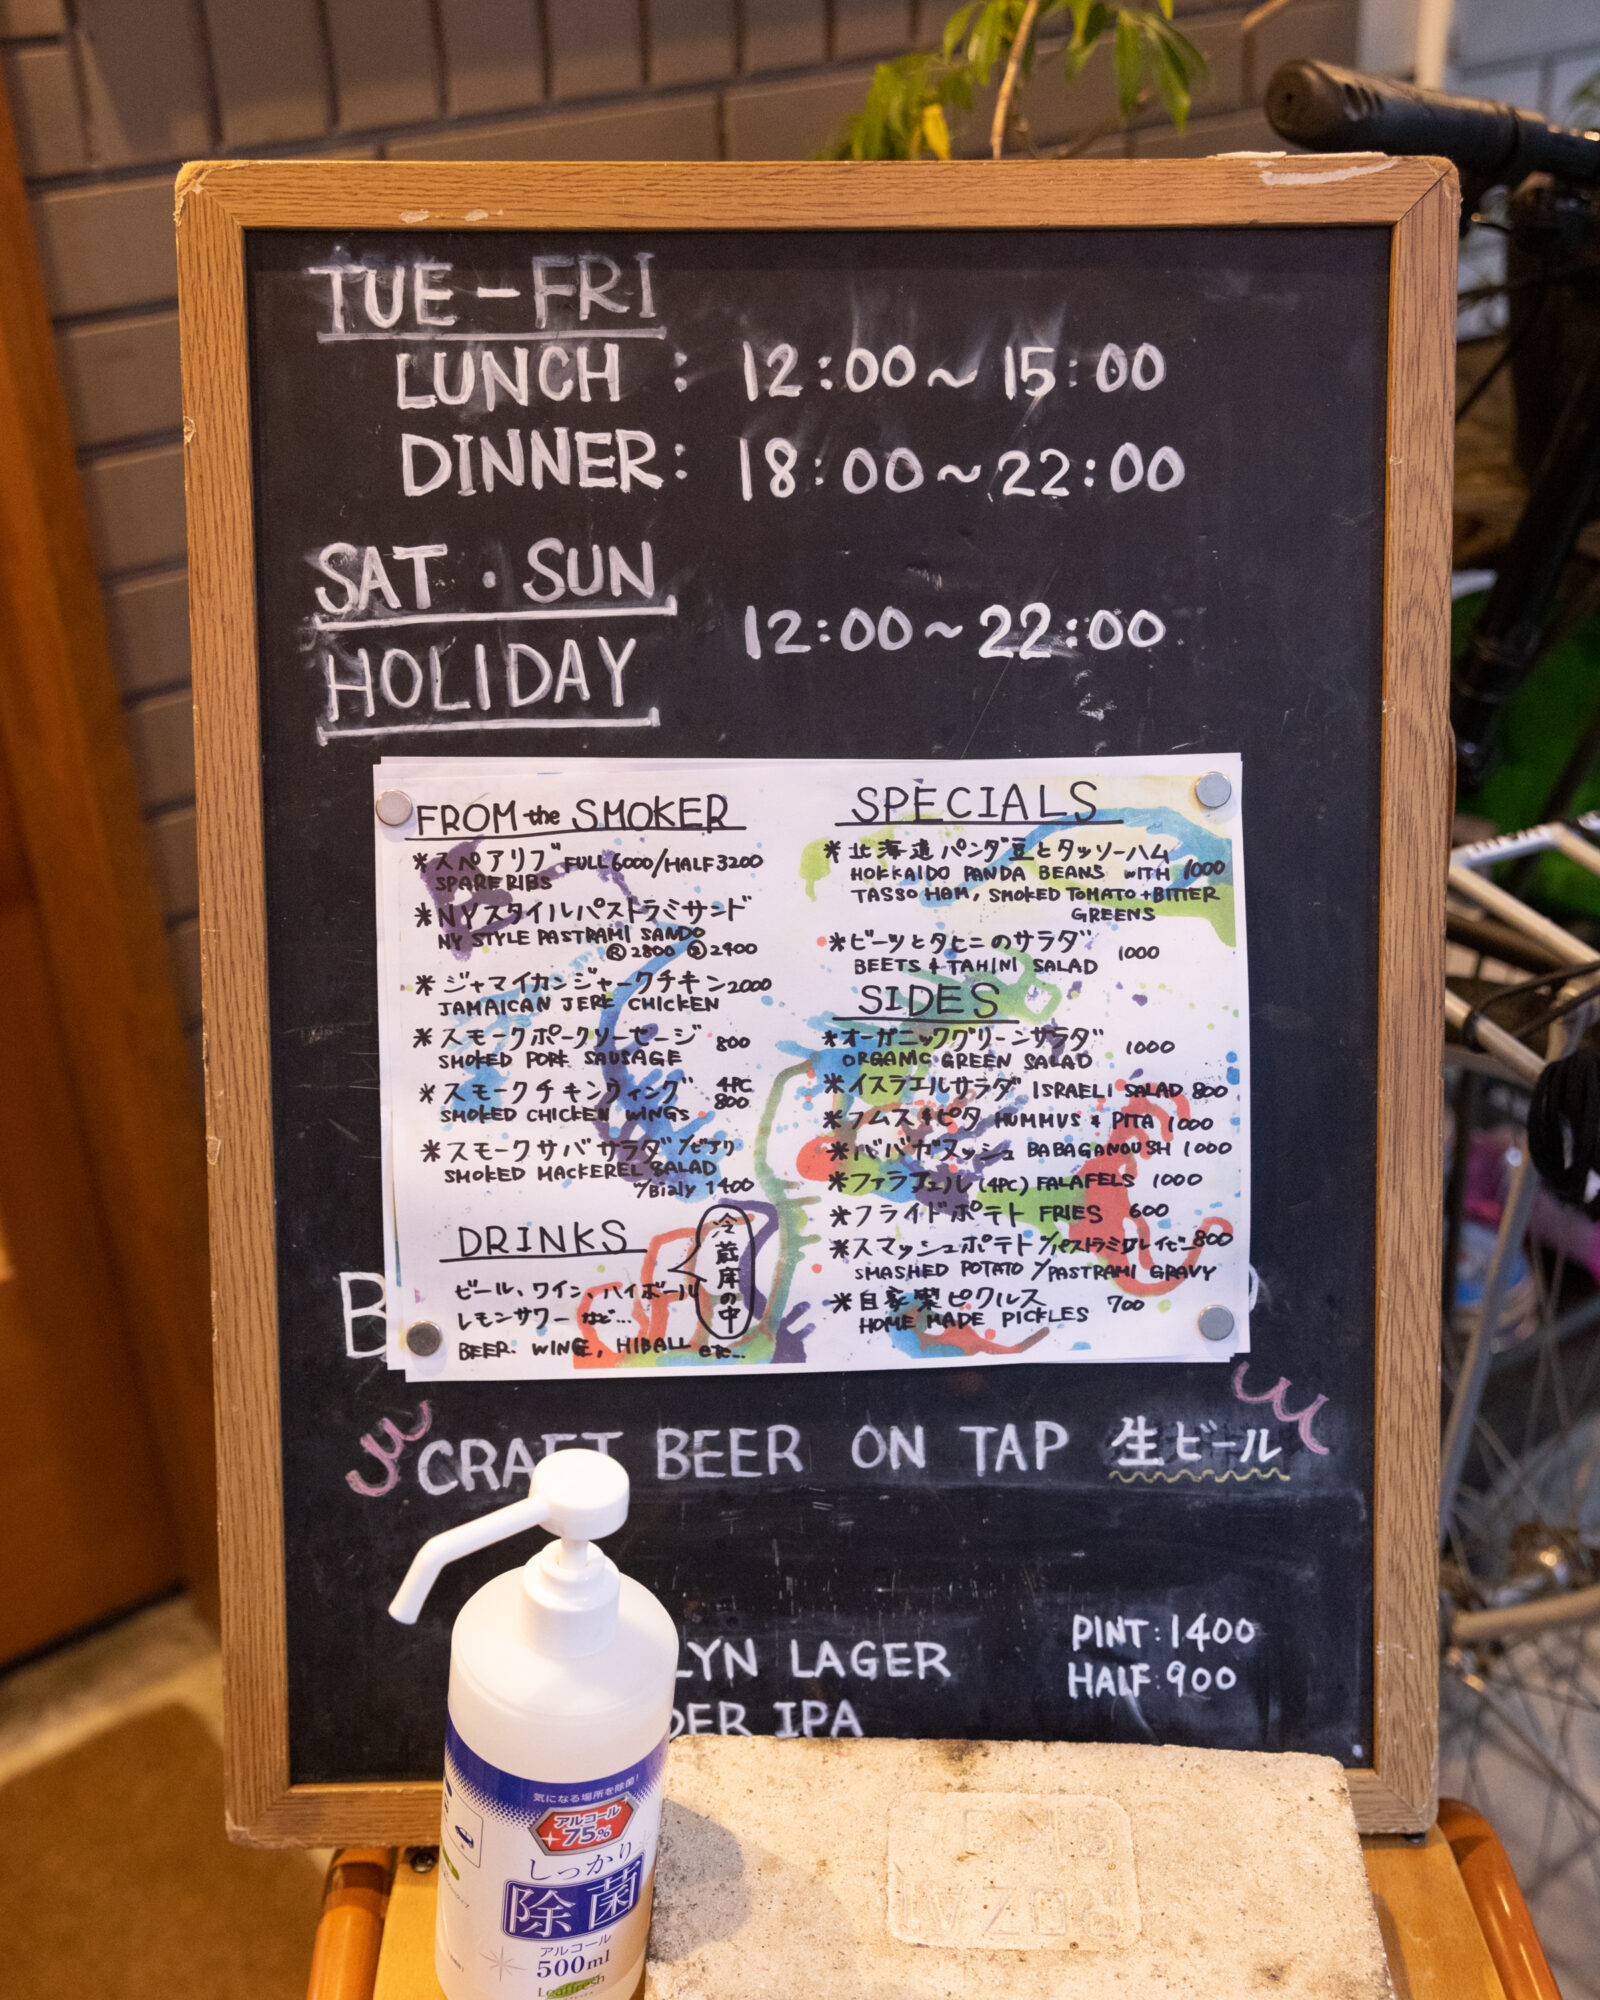 TUE-FRI
LUNCH : 12:00~15:00
DINNER: 18:00~22:00
SAT・SUN
HOLIDAY
12:00~22:00
FROM the SMOKER
*スペアリブ FULL 6000/HALF 3200
SPARE RIBS
*NYスタイルパストラミサンド
NY STYLE PASTRAMI SANDO
Ⓡ2800 2400
*ジャマイカンジャークチキン 2000
JAMAICAN JERK CHICKEN
*スモークポークソーセージ 800
SMOKED PORK SAUSAGE
*スモークチキンウィング 4PC 800
SMOKED CHICKEN WINGS
*スモークサバサラダ w/ビアリ
SMOKED MACKEREL SALAD
w/Bialy 1400
DRINKS
冷蔵庫の中
ビール、ワイン、ハイボール
レモンサワー など...
BEER. WINE, HIBALL etc...
SPECIALS
*北海道パンダ豆とタッソーハム
HOKKAIDO PANDA BEANS WITH 1000
TASSO HAM, SMOKED TOMATO + BITTER
GREENS
*ビーツとタヒニのサラダ 1000
BEETS & TAHINI SALAD
SIDES
*オーガニックグリーンサラダ 1000
ORGANIC GREEN SALAD
*イスラエルサラダ ISRAELI SALAD 800
*フムス&ピタ HUMMUS & PITA 1000
*ババガヌッシュ BABAGANOUSH 1000
*ファラフェル (4PC) FALAFELS 1000
*フライドポテト FRIES 600
*スマッシュポテト w/パストラミグレイビー 800
SMASHED POTATO w/PASTRAMI GRAVY
*自家製ピクルス 700
HOME MADE PICKLES
B
CRAFT BEER ON TAP 生ビール
LYN LAGER
DER IPA
PINT: 1400
HALF: 900
気になる場所を除菌!
アルコール
75%
しっかり
除菌
アルコール
500ml
Leaffresh